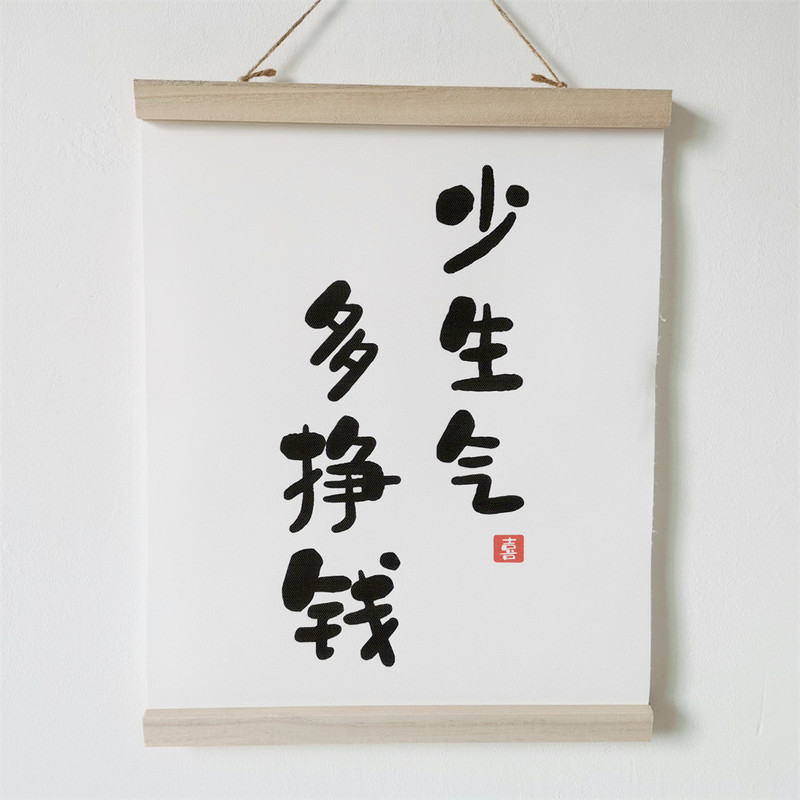 少生气
喜
多挣钱